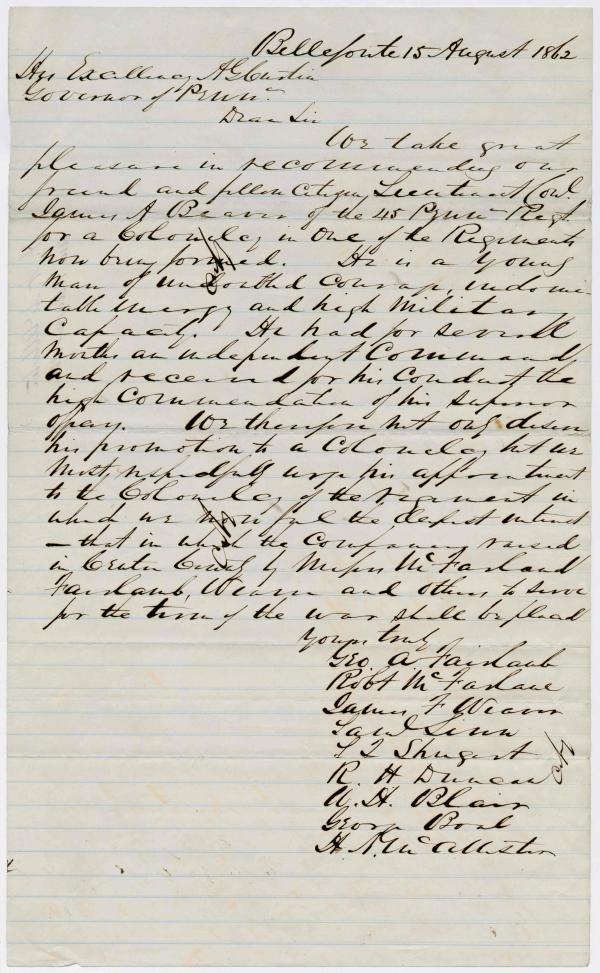 Bellefonte 15 August 1862
His Excellency A G Curtin
Governor of Penna.
Dear Sir
We take great
pleasure in recommending our
friend and fellow Citizen Lieutenant Conl.
James A Beaver of the 45 Penna Regt.
for a Colonelcy in One of the Regiments
now being formed. He is a Young
man of undoubted Courage, indomi-
table energy and high Military
Capacity. He had for several
months an independent Command,
and received for his Conduct the
high Commendation of his superior
officers. We therefore not only desire
his promotion to a Colonelcy but we
most respectfully urge his appointment
to the Colonelcy of the regiment in
which we now feel the deepest interest
– that in which the Companies raised
in Centre County by Messrs McFarland
Fairlamb, Weaver and others to serve
for the term of the war shall be placed
Yours truly
Geo. A Fairlamb
Robt McFarlane
James F Weaver
Saml Linn
S T Shugert
R. H Duncan
W. H. Blair
George Boal
H. N. McAllister